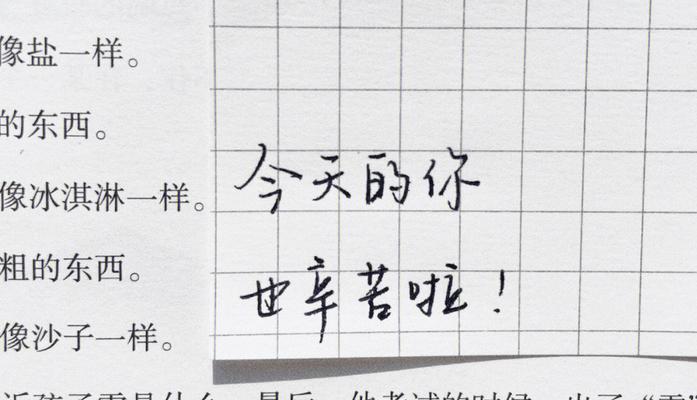 像盐一样。
的东西。
像冰淇淋一样。
粗的东西。
像沙子一样。
今天的你
也辛苦啦！